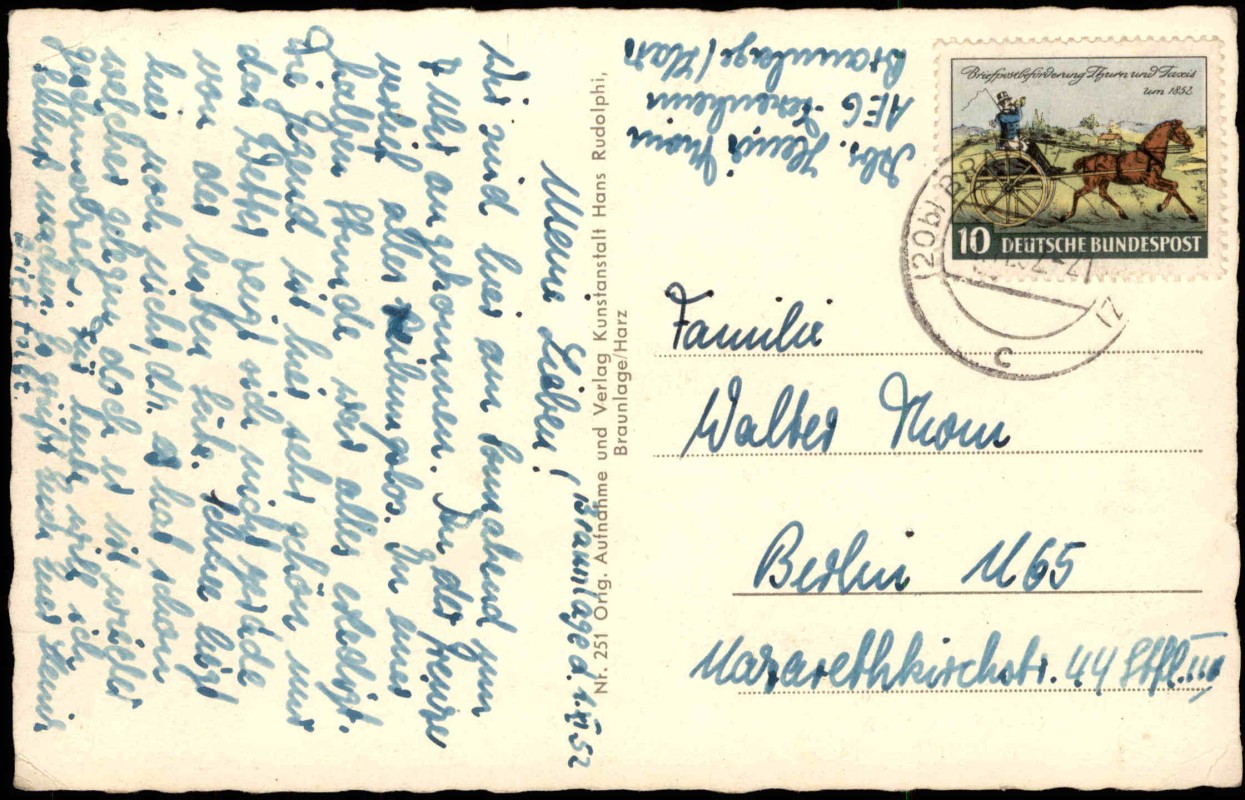 Meine Lieben! Braunlage d. 1. XI 52
Wir sind hier am Sonnabend um
7 Uhr angekommen. An der Grenze
verlief alles reibungslos. In einer
halben Stunde war alles erledigt.
Die Gegend ist hier sehr schön nur
das Wetter zeigt sich nicht gerade
von der besten Seite. Schnee liegt
hier noch nicht, d.h. es hat schon
welcher gelegen doch er ist wieder
Für heute will ich
Schluß machen. Es grüßt Euch Euer Heini
Brief folgt.
Nr. 251 Orig. Aufnahme und Verlag Kunstanstalt Hans Rudolphi,
Braunlage/Harz
Abs. Heinz
AEG
Braunlage/Harz
Briefpostbeförderung Thurn und Taxis
um 1852
10 DEUTSCHE BUNDESPOST
(20b) BR
c
Familie
Walter Thom
Berlin N65
Nazarethkirchstr. 44 Stfl. III